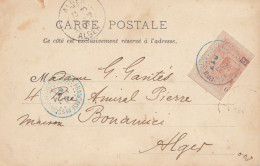 CARTE POSTALE
Ce côté est exclusivement réservé à l'adresse.
Madame G. Gantès
4 Rue Amiral Pierre
Maison Bonamici
Alger